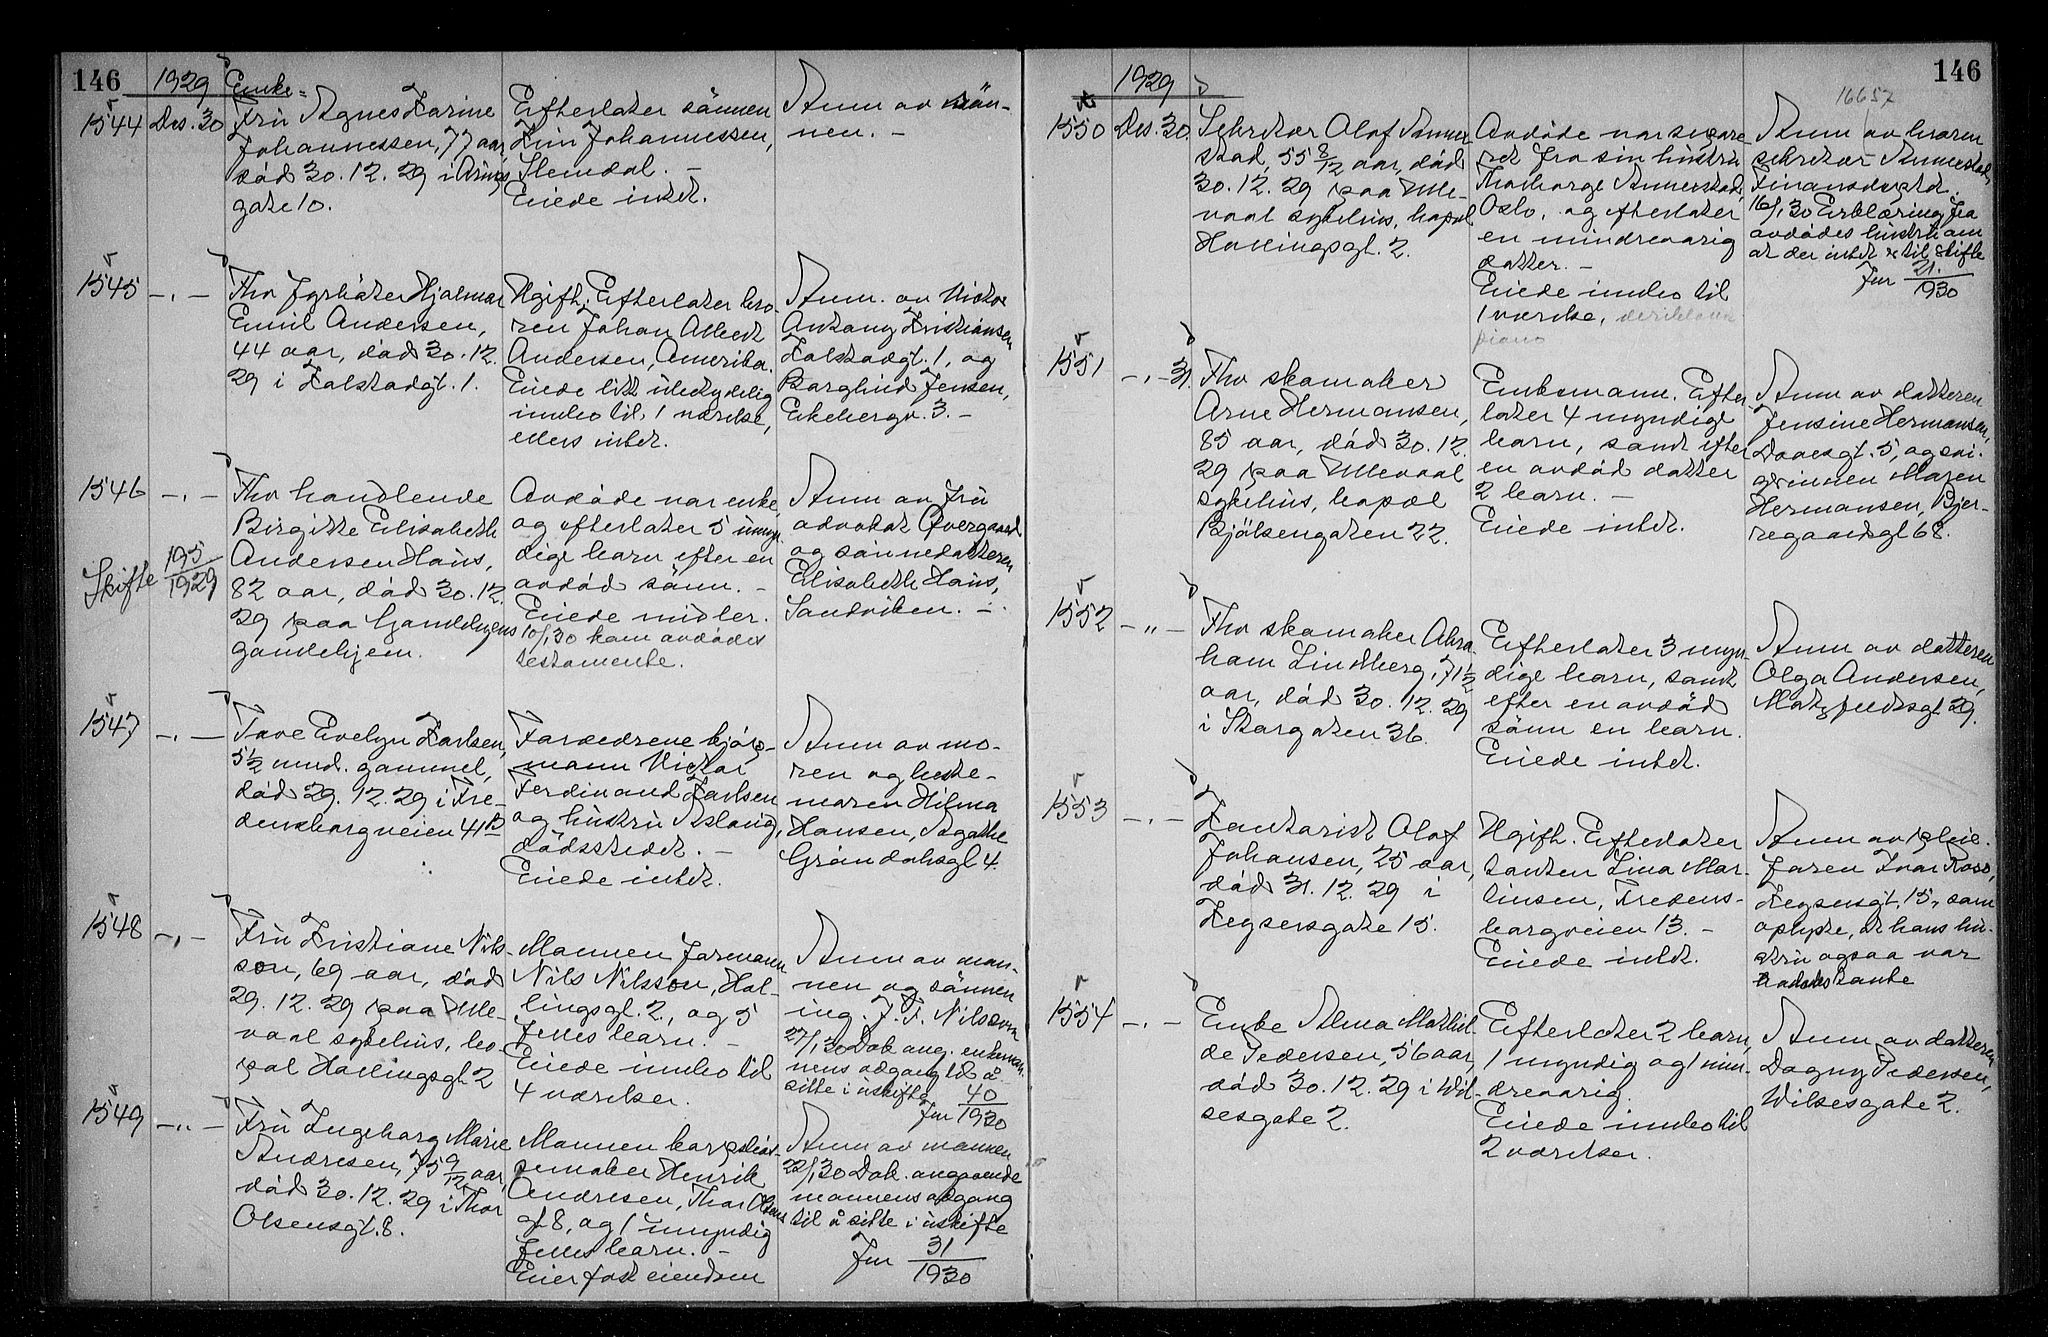 146
1929
1544 Des. 30
Enke-
Fru Agnes Karine
Johannessen, 77 aar,
død 30.12.29 i
gate 10.
Efterlater sønnen
Johannessen,
Eiede intet.
Anm av søn-
nen. -
1545 -,-
Fhv Hjalmar
Emil Andersen,
44 aar, død 30.12.
29 i Falstadgt. 1.
Ugift. Efterlater bro-
ren Johan Albert
Andersen, Amerika.
Eiede litt ubetydelig
innbo til 1 værelse,
ellers intet.
Anm. av Victor
Antony Kristiansen
Falstadgt. 1, og
Borghild Jensen,
Ekebergv. 3. -
1546 -,-
Skifte 195/1929
Fhv handlende
Birgitte Elisabeth
Andersen Haus,
82 aar, død 30.12.
29 paa Gamlebyens
gamlehjem.
Avdøde var enke
og efterlater 5 umyn
dige barn efter en
avdød sønn. -
Eiede midler.
10/1 30 kom avdødes
testamente.
Anm av fru
advokat Øvergaard
og sønnedatteren
Elisabeth Haus,
Sandviken. -
1547 -,-
Tove Evelyn Karlsen,
5½ mnd. gammel,
død 29.12.29 i Fre-
densborgveien 41B
Forældrene kjøp-
mann Victor
Ferdinand Karlsen
og hustru Aslaug,
dødsstedet. -
Eiede intet.
Anm av mo-
ren og beste-
moren Hilma
Hansen, Agathe
Grøndahlsgt 4.
1548 -,-
Fru Kristiane Nils-
son, 69 aar, død
29.12.29 paa Ulle-
vaal sykehus, bo-
pæl Hallingsgt 2
Mannen formann
Nils Nilsson, Hal-
lingsgt. 2, og 5
felles barn. -
Eiede innbo til
4 værelser.
Anm av man-
nen og sønnen
ing. J. F. Nilsson
27/1 30 Dok. ang. enkeman-
nens adgang til å
sitte i uskifte
Jnr 40/1930
1549 -,,-
Fru Ingeborg Marie
Andresen, 75 9/12 aar,
død 30.12.29 i Thor
Olsensgt. 8.
Mannen
Henrik
Andresen, Thor Olsens
gt 8, og 1 umyndig
felles barn. -
Eier fast eiendom
Anm av mannen
22/1 30 Dok. angaaende
mannens adgang
til å sitte i uskifte
Jnr 31/1930
146
1929
16657
1550 Des. 30.
Sekretær Olaf Anner
stad, 55 8/12 aar, død
30.12.29 paa Ulle-
vaal sykehus, bopæl
Hallingsgt. 2.
Avdøde var separe
ret fra sin hustru
Thorborge Annerstad,
Oslo, og efterlater
en mindreaarig
datter. -
Eiede innbo til
1 værelse, deriblandt
piano
Anm av broren
sekretær Annerstad,
Finansdeptd.
16/1 30 Erklæring fra
avdødes hustru om
at der intet er til skifte
Jnr 21./1930
1551 -,- 31.
Fhv skomaker
Arne Hermansen,
85 aar, død 30.12.
29 paa Ullevaal
sykehus, bopæl
Bjølsengaten 22.
Enkemann. Efter
later 4 myndige
barn, samt efter
en avdød datter
2 barn. -
Eiede intet.
Anm av datteren
Jensine Hermansen,
Daaesgt. 5, og svi-
gerinnen Maren
Hermansen, Bjer-
regaardsgt 68.
1552 -,,-
Fhv skomaker Abra
ham Lindberg, 71½
aar, død 30.12.29
i Storgaten 36.
Efterlater 3 myn-
dige barn, samt
efter en avdød
sønn en barn.
Eiede intet.
Anm av datteren
Olga Andersen,
29.
1553 -,-
Kontorist Olaf
Johansen, 25 aar,
død 31.12.29 i
Keysersgate 15.
Ugift. Efterlater
tanten Lina Mar-
tinsen, Fredens-
borgveien 13. -
Eiede intet.
Anm av pleie-
faren Ivar Ross,
Keysersgt. 15, som
oplyste, at hans hu-
stru ogsaa var
avdødes tante
1554 -,-
Enke Alma Mathil-
de Pedersen, 56 aar,
død 30.12.29 i Wil-
sesgate 2.
Efterlater 2 barn,
1 myndig og 1 min-
dreaarig.
Eiede innbo til
2 værelser.
Anm av datteren
Dagny Pedersen,
Wilsesgate 2.